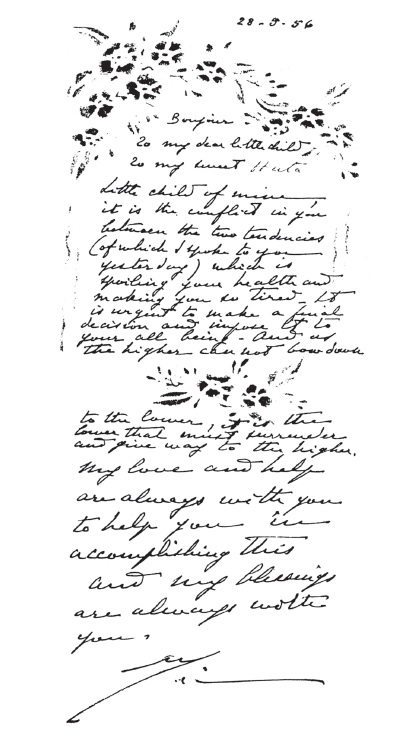 28-9-56
Bonjour
To my dear little child,
To my sweet Huta
Little child of mine,
it is the conflict in you
between the two tendencies
(of which I spoke to you
yesterday) which is
spoiling your health and
making you so tired. It
is urgent to make a final
decision and impose it to
your all being. And as
the higher can not bow down
to the lower, it is the
lower that must surrender
and give way to the higher.
My love and help
are always with you
to help you in
accomplishing this
and my blessings
are always with
you.